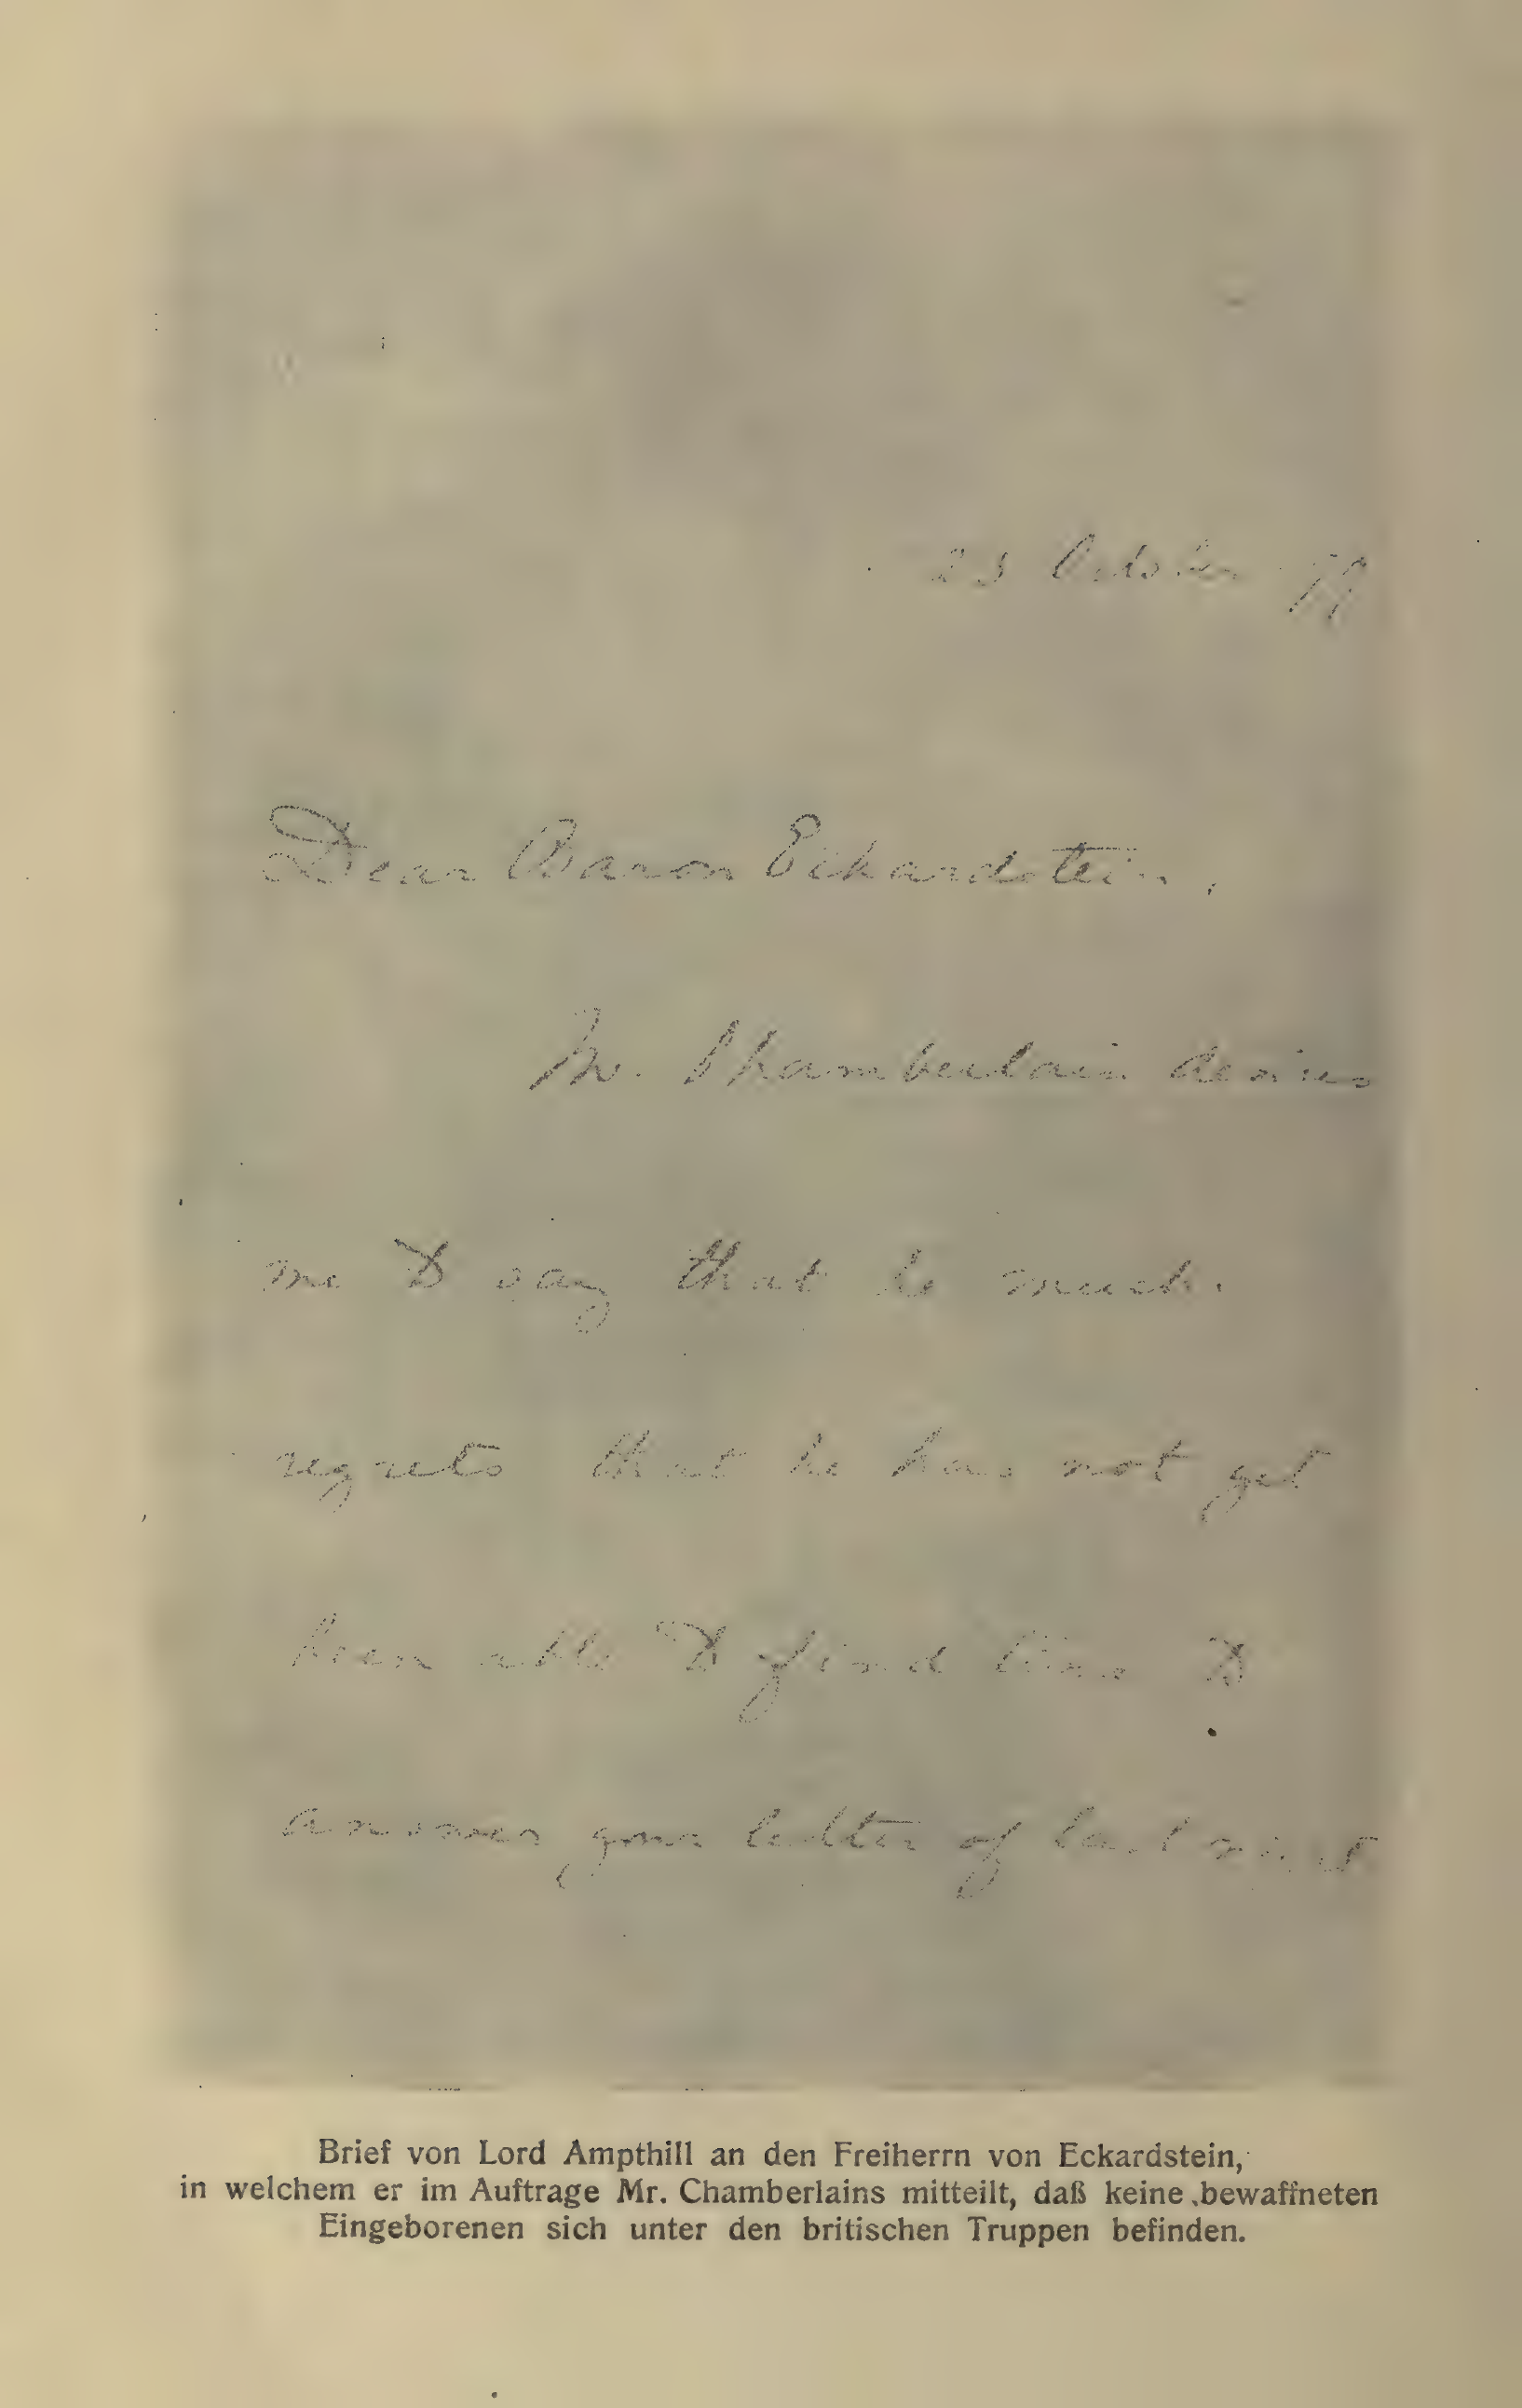 23 October 99
Dear Baron Eckardstein,
Mr. Chamberlain desires
me to say that he much
regrets that he has not yet
been able to find time to
answer your letter of last night
Brief von Lord Ampthill an den Freiherrn von Eckardstein,
in welchem er im Auftrage Mr. Chamberlains mitteilt, daß keine bewaffneten
Eingeborenen sich unter den britischen Truppen befinden.